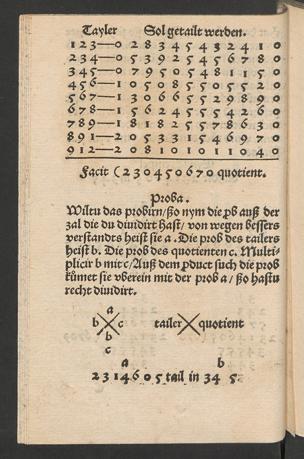 Tayler Sol getailt werden.
123—0 2 8 3 4 5 4 3 2 4 1 0
234—0 5 3 9 2 5 4 5 6 7 8 0
345—0 7 9 5 0 5 4 8 1 1 5 0
456—1 0 5 0 8 5 5 0 5 5 2 0
567—1 3 0 6 6 5 5 2 9 8 9 0
678—1 5 6 2 4 5 5 5 4 2 6 0
789—1 8 1 8 2 5 5 7 8 6 3 0
891—2 0 5 3 3 1 5 4 9 7 9 0
912—2 0 8 1 0 1 0 1 1 0 4 0
Facit (2 3 0 4 5 0 6 7 0 quotient.
Proba.
Wiltu das probirn/ ßo nym die pb auß der
zal die du dividirt hast/ von wegen bessers
verstandts heist sie a. Die prob des tailers
heist b. Die prob des quotienten c. Multi-
plicir b mit c/ Auß dem pduct such die prob
kumet sie vberein mit der prob a/ ßo hastu
recht dividirt.
a
b c tailer quotient
b
c
a b
2 3 1 4 6 0 5 tail in 34 5